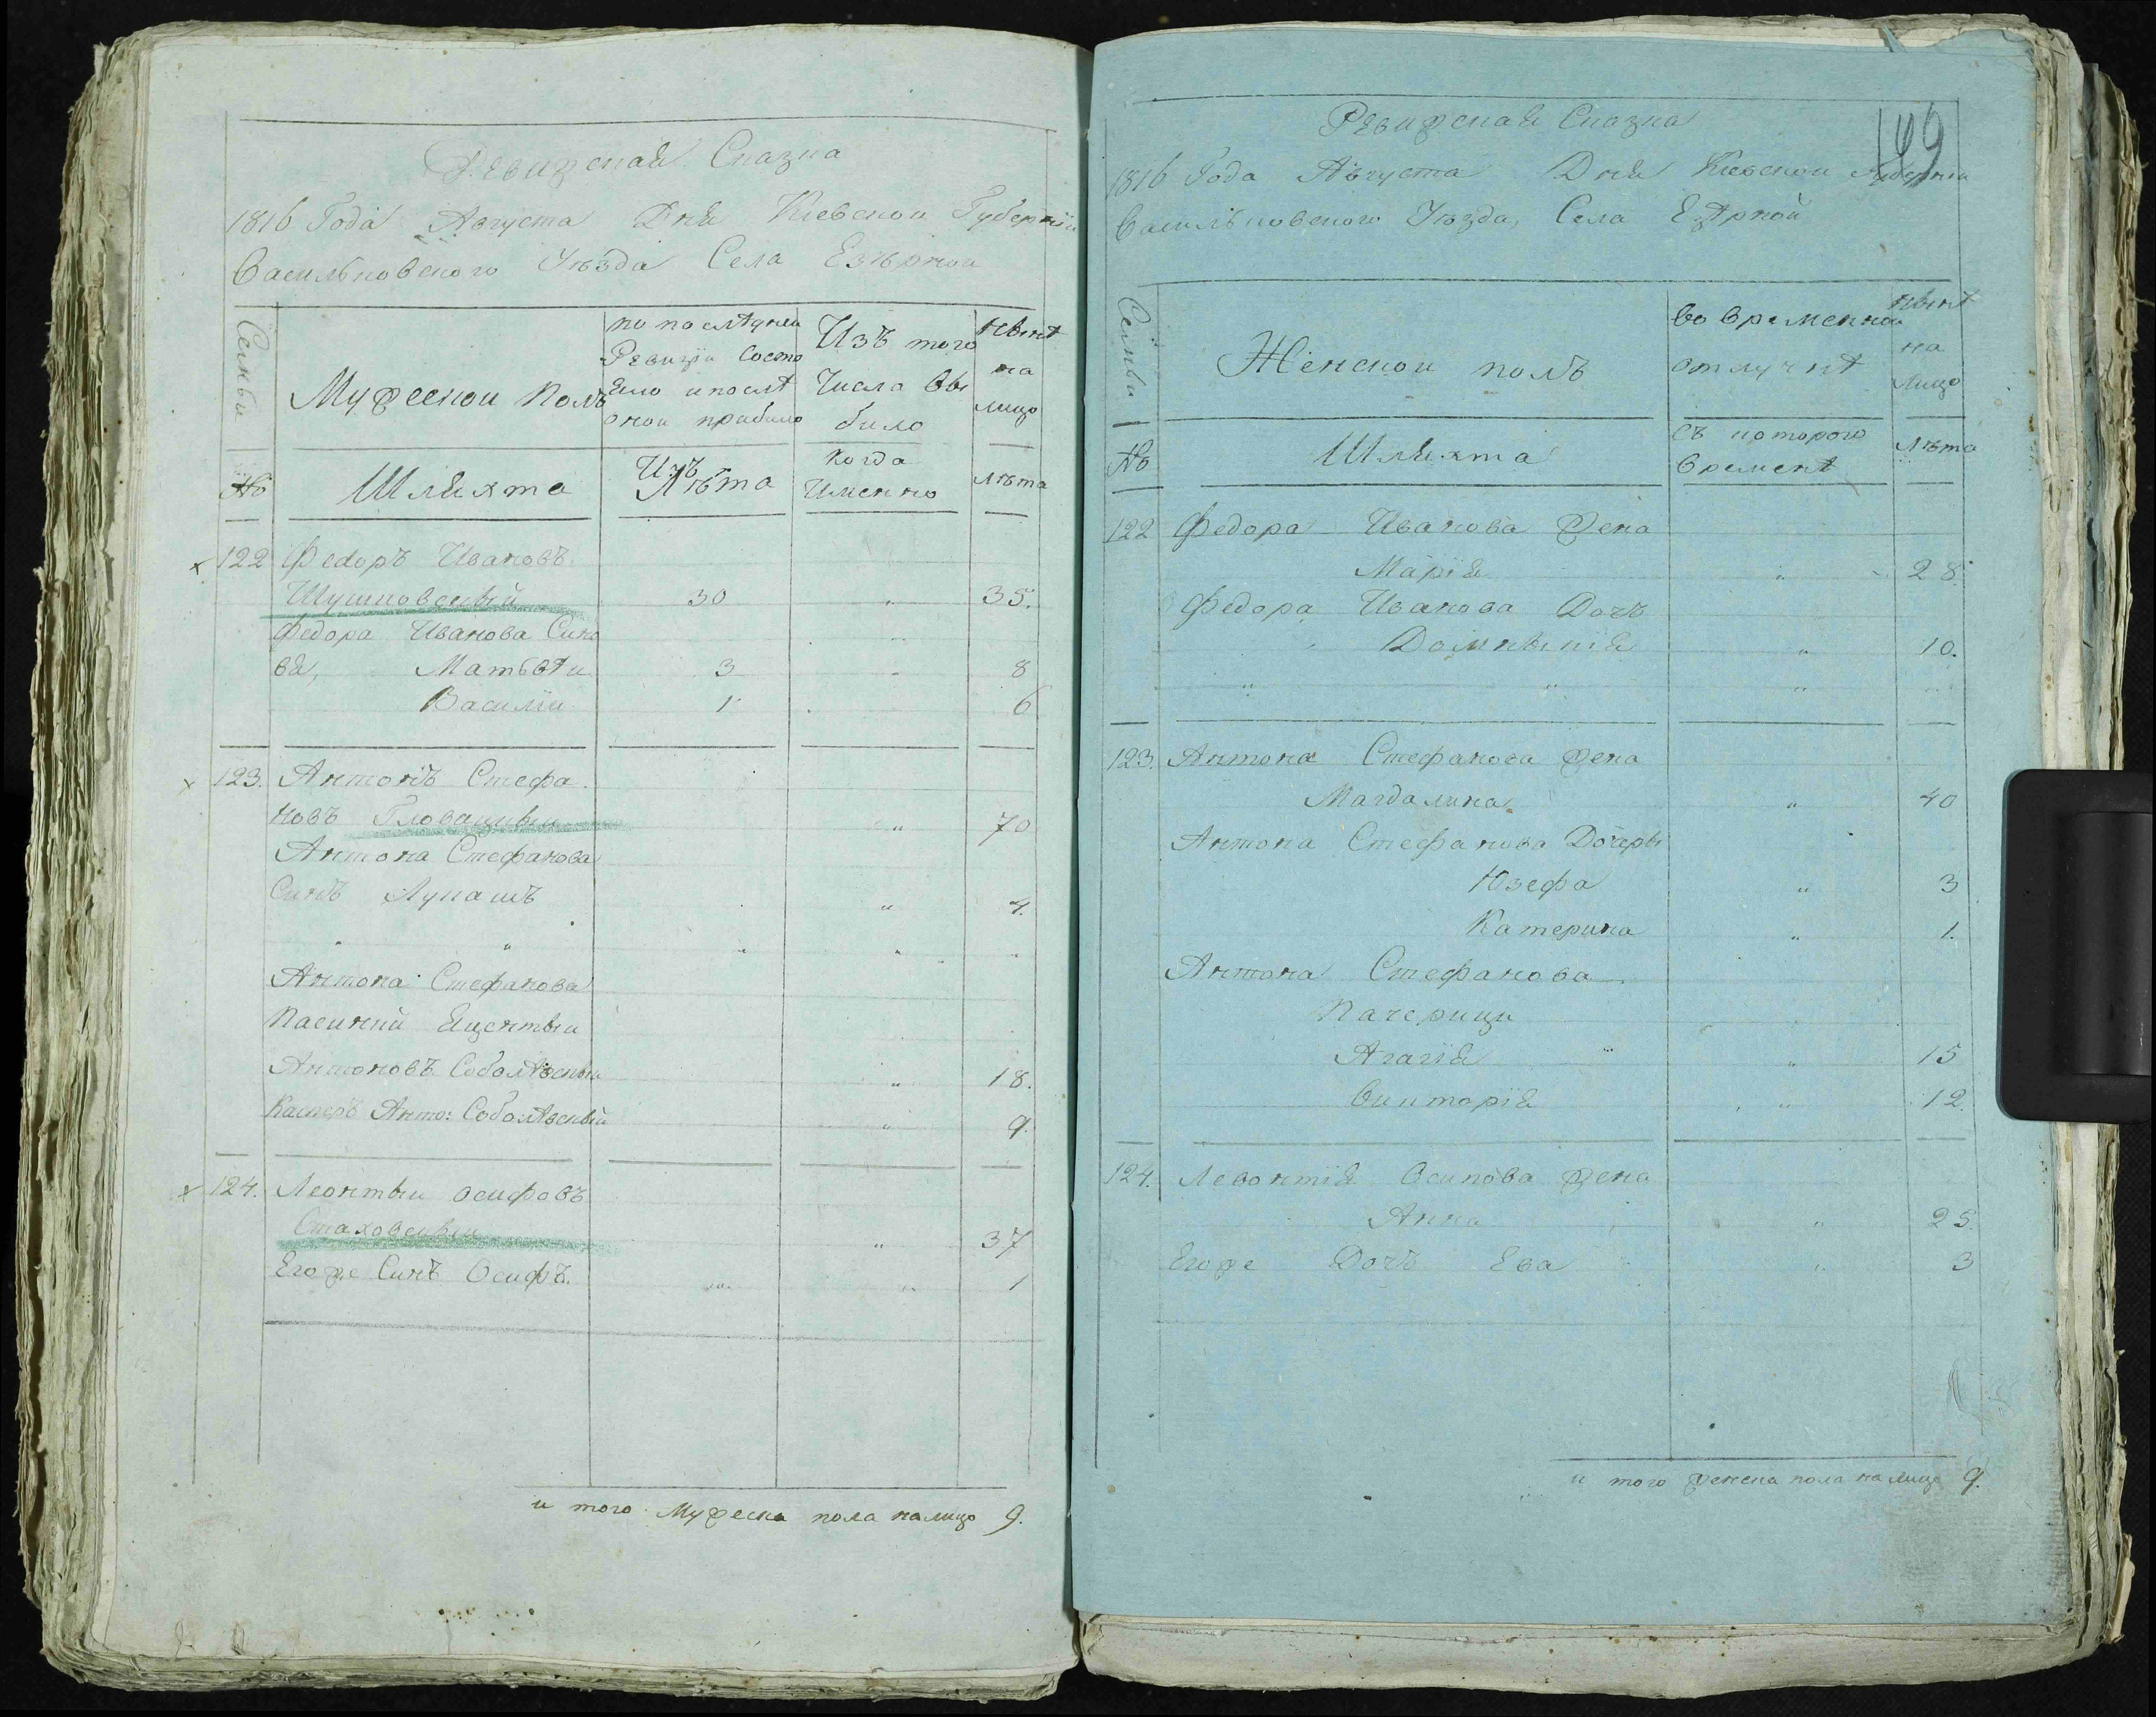 Ревизская Сказка
1816 Года Августа Дня Кіевской Губерніи
Васильковского Уезда Села Езѣрной
Семьи
Мужеской Полъ
по последнеи
Ревизіи состо
Яло и послѣ
оной прибыло
Изъ того
Числа Вы
было
Нынѣ
на
лицо
№
Шляхта
Изъ
Лѣта
Когда
Именно
лѣта
122 Федоръ Ивановъ
Шушковскый 30 " 35.
Федора Иванова Сино
вя, Матвѣи 3 " 8
Василіи 1 " 6
123. Антонъ Стефа
новъ Гловацкыи " 70
Антона Стефанова
Синъ Лукашъ " 4.
" " " " "
Антона Стефанова
Пасинки Яцентыи
Антоновъ Соболѣвскыи " 18.
Касперъ Анто: Соболѣвскый " 9.
124. Леонтыи Осифовъ
Стаховскыи " 37
Егоже Синъ Осифъ. " " 1
и того Мужеска пола налицо 9.
149
Ревизская Сказка
1816 Года Августа Дня Кіевской Губерніи
Васильковского Уезда, Села Езѣрной
Семьи
Женской полъ
во временной
отлучкѣ
Нынѣ
на
лицо
№
Шляхта
съ которого
времени
Лѣта
122 Федора Иванова Жена
Марія " 28.
Федора Иванова Дочь
Домныкія " 10.
" " " "
123. Антона Стефанова Жена
Магдалина " 40
Антона Стефанова Дочеры
Юзефа " 3
Катерина " 1.
Антона Стефанова
Пачерици
Агагія " 15
Викторія " 12.
124. Левонтія Осипова Жена
Анна " 25.
Егоже Дочь Ева " 3
и того Женска пола налицо 9.